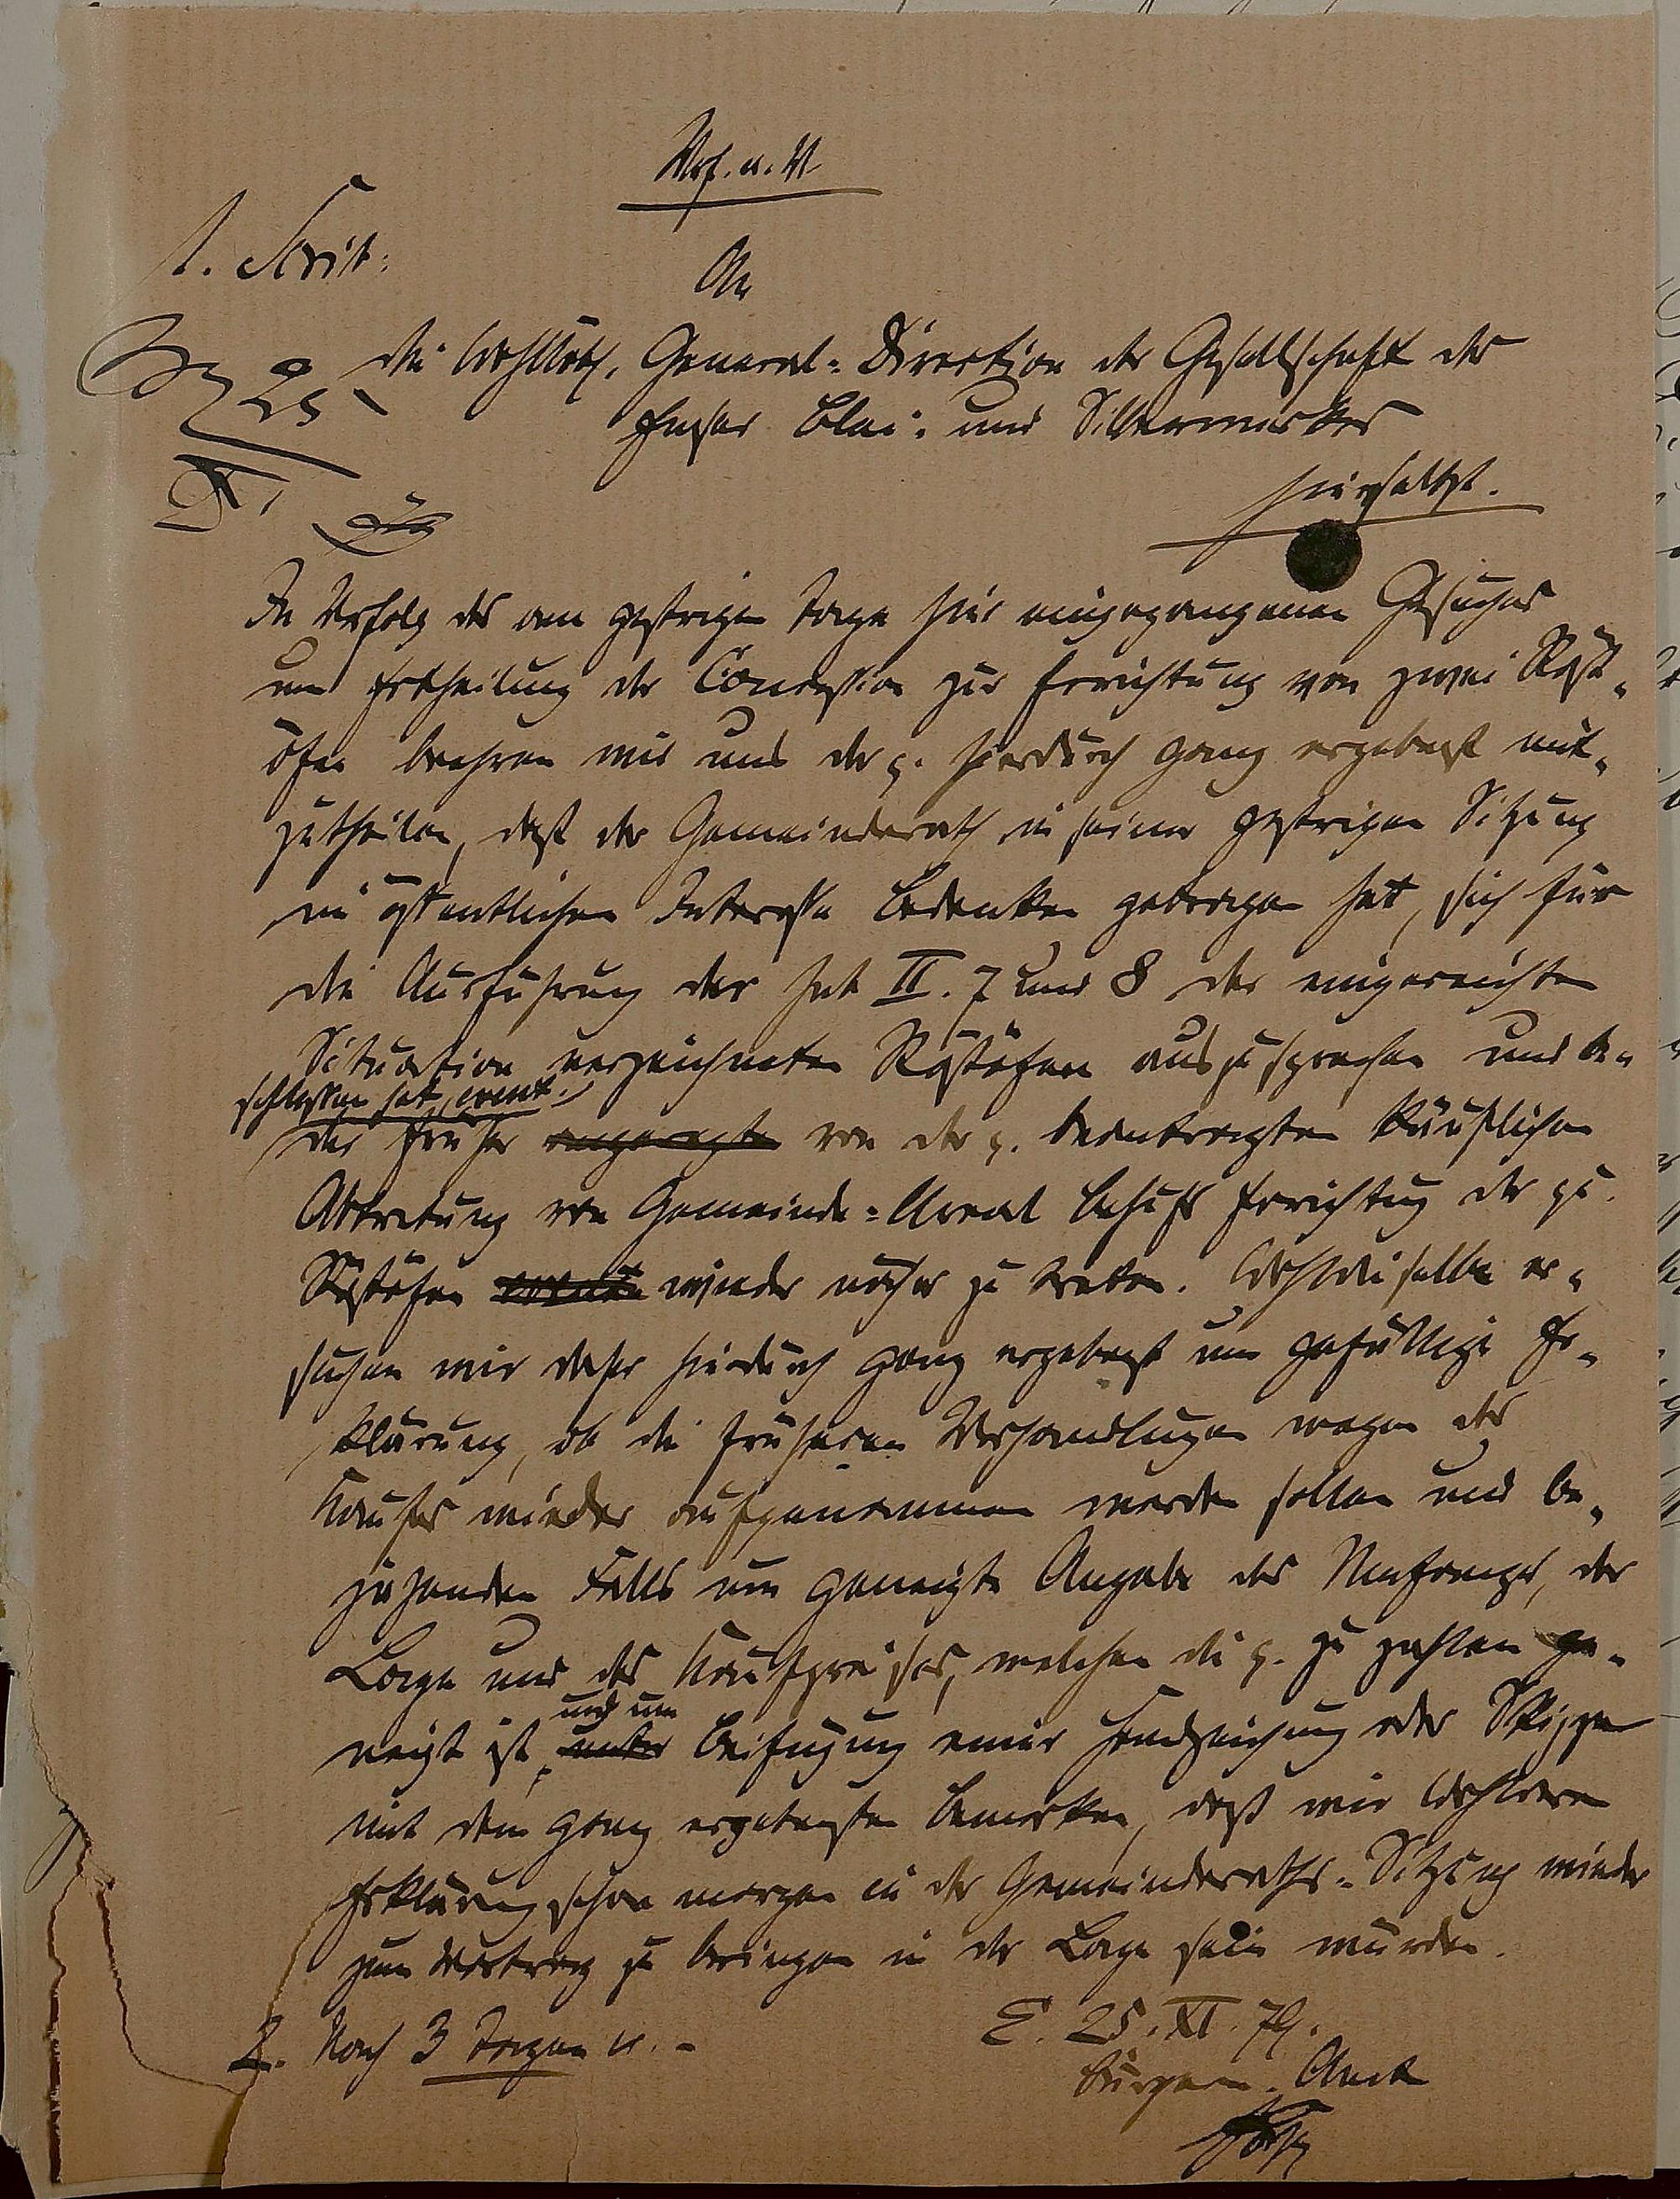 1. Scrib:
An
die Wohllöbl. General-Direction der Gesellschaft des
Emser Blei- und Silberwerkes
hierselbst.
25
XI
In Verfolg des am gestrigen Tage hier eingegangenen Gesuches
um Ertheilung der Concession zur Errichtung von zwei Röst-
öfen beehren wir uns der p. hierdurch ganz ergebenst mit-
zutheilen, daß der Gemeinderath in seiner gestrigen Sitzung
im öffentlichen Interesse Bedenken getragen hat, sich für
die Ausführung der sub II. 7 und 8 der eingereichten
Situation verzeichneten Röstöfen auszusprechen und be-
schlossen hat, event.
der früher angeregten von der p. beantragten käuflichen
Abtretung von Gemeinde-Areal behufs Errichtung der qu.
Röstöfen wieder näher zu treten. Wohldieselbe er-
suchen wir daher hierdurch ganz ergebenst um gefällige Er-
klärung, ob die früheren Verhandlungen wegen des
Kaufes wieder aufgenommen werden sollen und be-
jahenden Falls um geneigte Angabe des Umfanges, der
Lage und des Kaufpreises, welchen die p. zu zahlen ge-
und um
neigt ist, unter Beifügung einer Handzeichnung oder Skizze
mit dem ganz ergebensten Bemerken, daß wir Wohlderen
Erklärung schon morgen in der Gemeinderaths-Sitzung wieder
zum Vortrag zu bringen in der Lage sein würden.
2. Nach 3 Tagen
E. 25. XI. 79.
Bürgerm. Amt